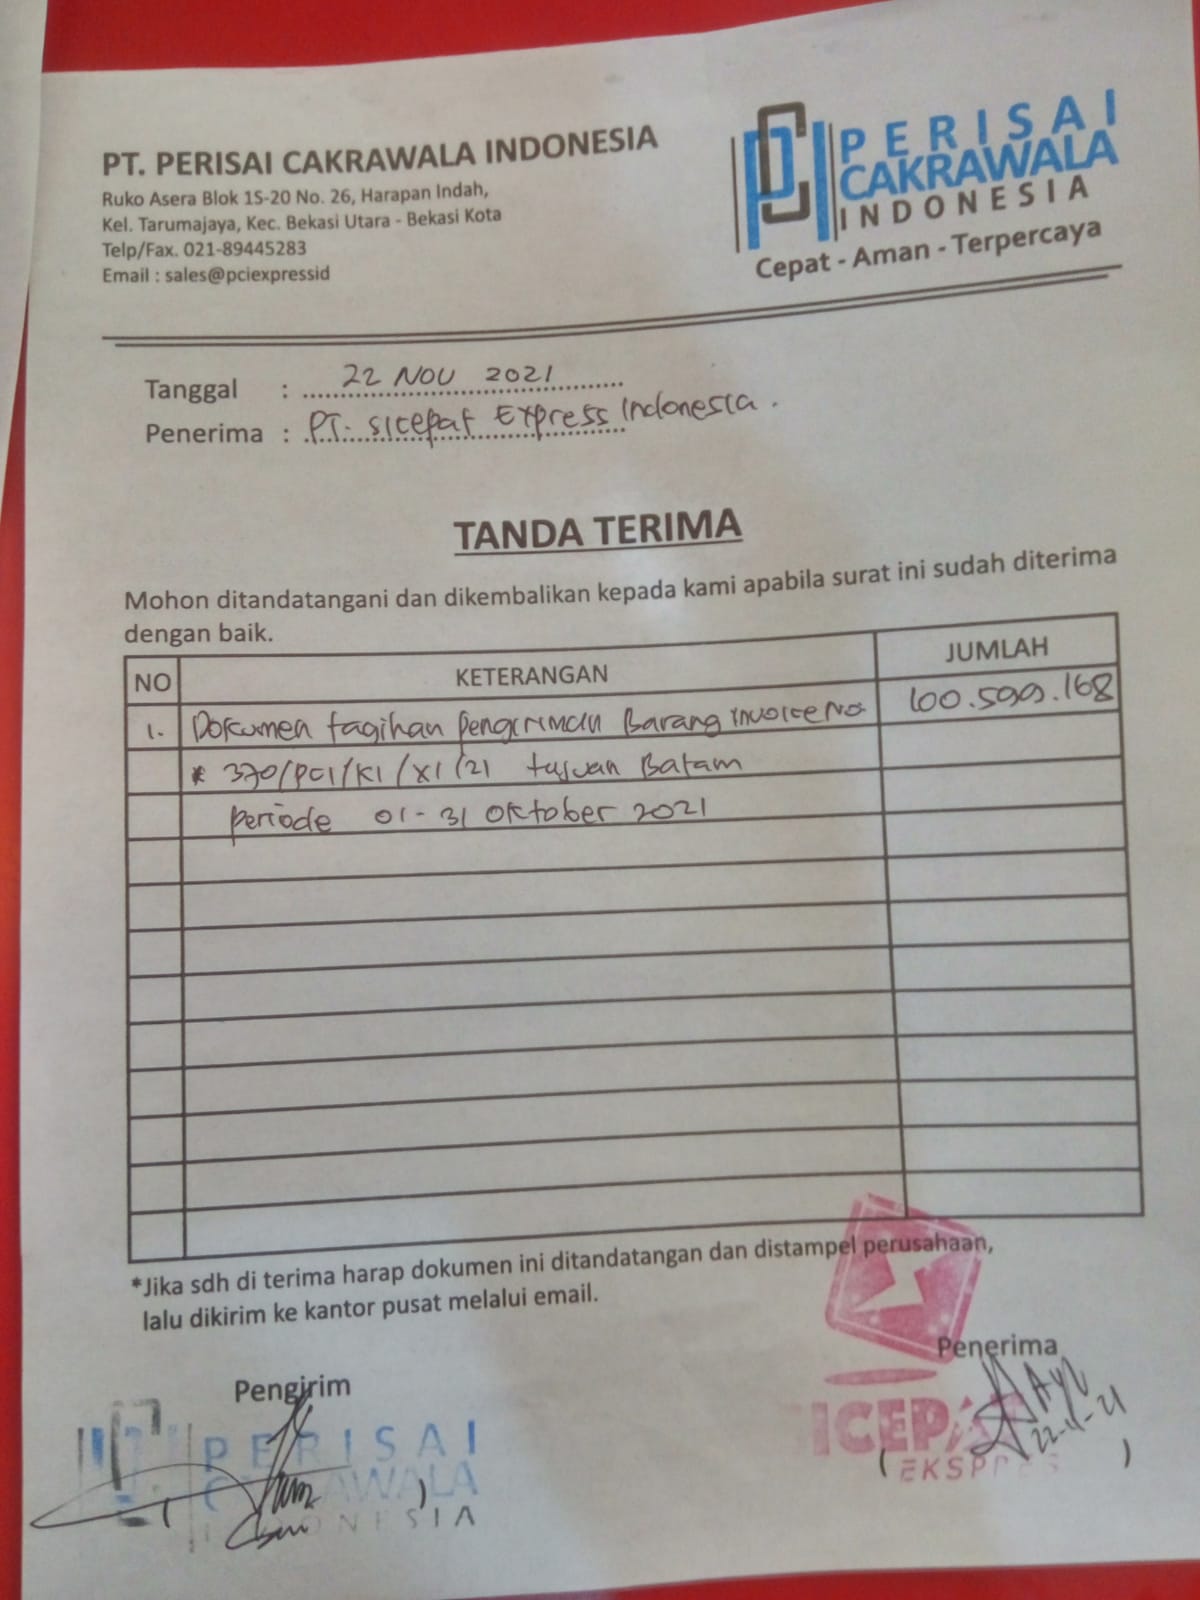 PT. PERISAI CAKRAWALA INDONESIA
Ruko Asera Blok 1S-20 No. 26, Harapan Indah,
Kel. Tarumajaya, Kec. Bekasi Utara - Bekasi Kota
Telp/Fax. 021-89445283
Email : sales@pciexpressid
PERISAI
CAKRAWALA
INDONESIA
Cepat - Aman - Terpercaya
Tanggal : 22 NOV 2021
Penerima : PT. Sicepat Express Indonesia.
TANDA TERIMA
Mohon ditandatangani dan dikembalikan kepada kami apabila surat ini sudah diterima
dengan baik.
NO KETERANGAN JUMLAH
1. Dokumen tagihan pengiriman Barang invoice No. 100.599.168
* 370/PCI/KI/XI/21 tujuan Batam
periode 01-31 Oktober 2021
*Jika sdh di terima harap dokumen ini ditandatangan dan distampel perusahaan,
lalu dikirim ke kantor pusat melalui email.
Pengirim
PERISAI
CAKRAWALA
INDONESIA
Penerima
Ayu
22-11-21
ICEPA
EKSPRES